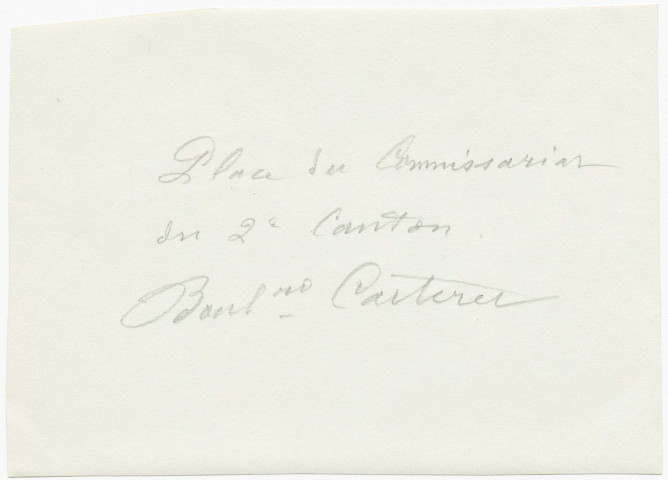 Place du Commissariat
du 2e Canton.
Boul Carteret